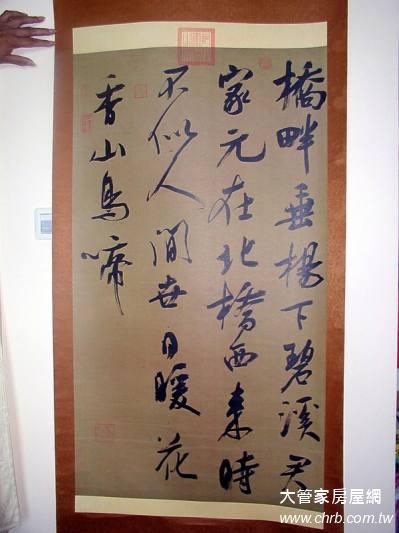 橋畔垂楊下碧溪君
家元在北橋西來時
不似人間世日暖花
香山鳥啼
大管家房屋網
www.chrb.com.tw